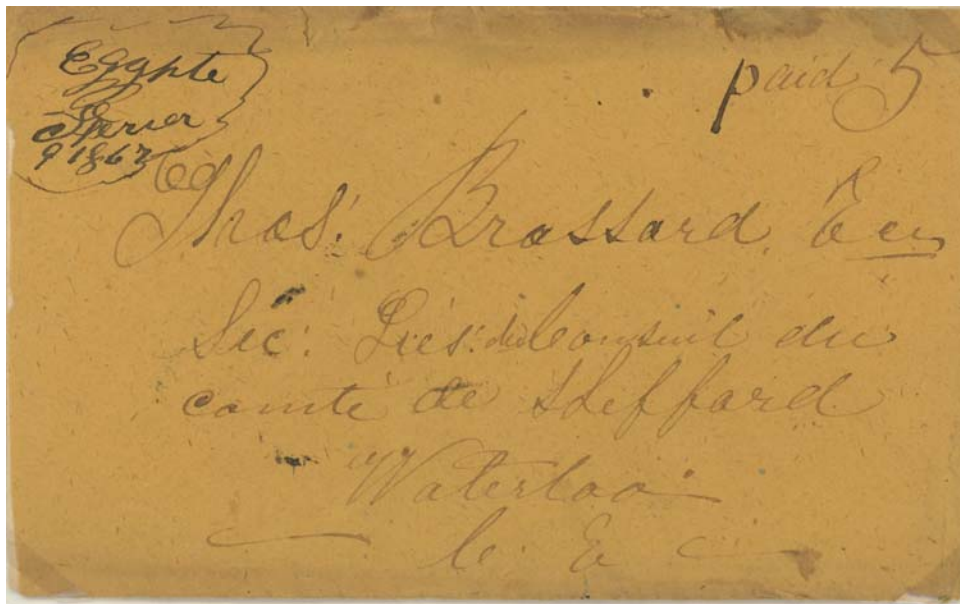 Egypte
9 1867
paid 5
Thos. Brassard Ecr
Séc. Trés. du Conseil du
comté de Shefford
Waterloo
C. E